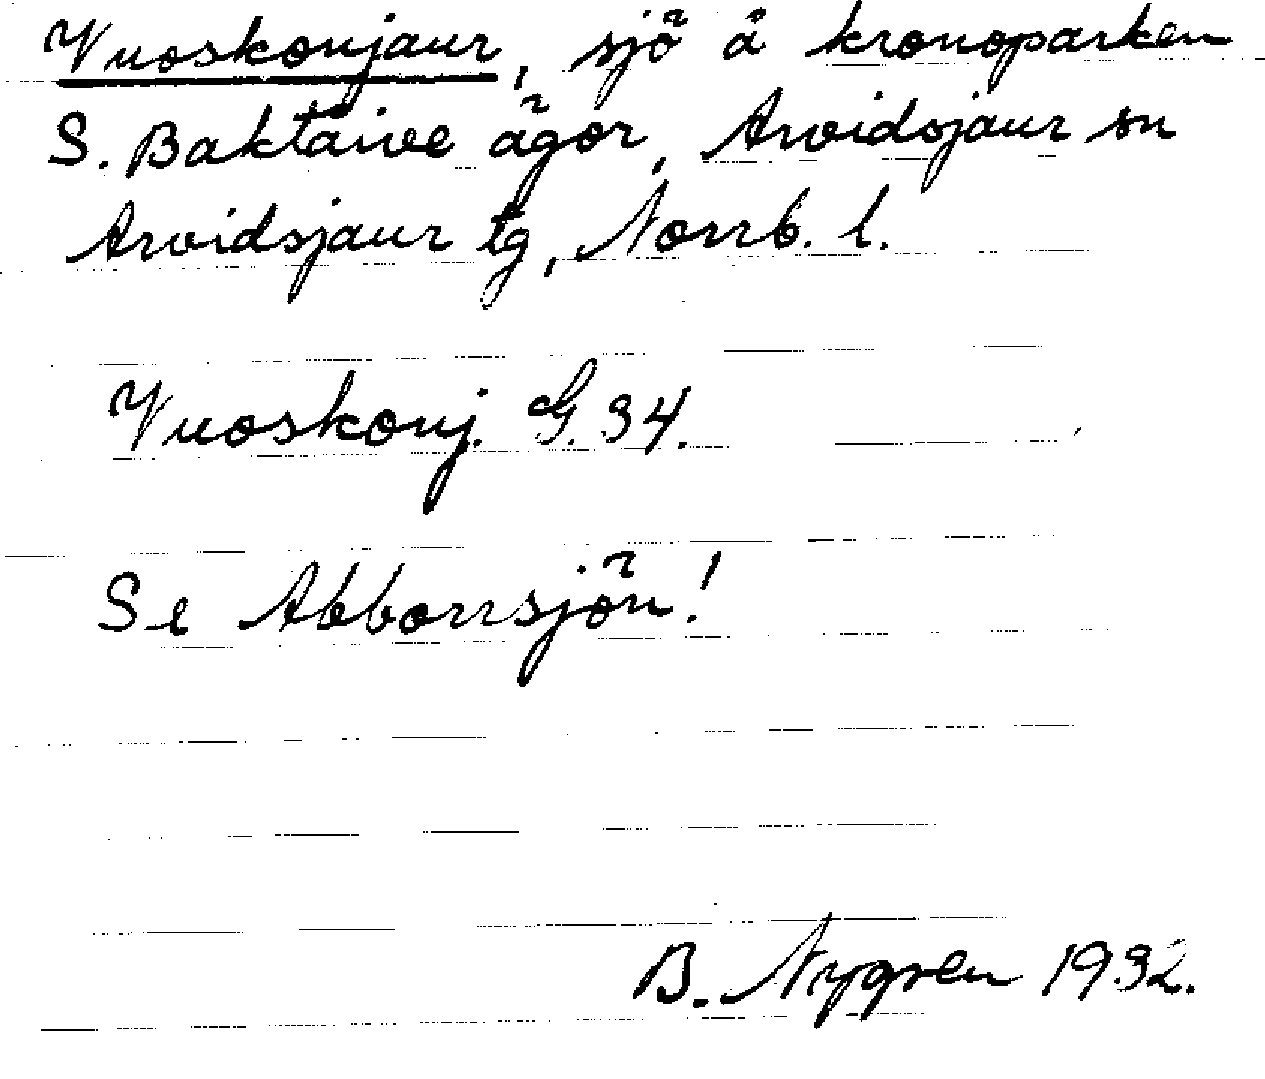 Vuoskonjaur, sjö å kronoparken
S. Baktaive ägor, Arvidsjaur sn
Arvidsjaur tg, Norrb. l.
Vuoskonj. G. 34.
Se Abborrsjön!
B. Nygren 1932.